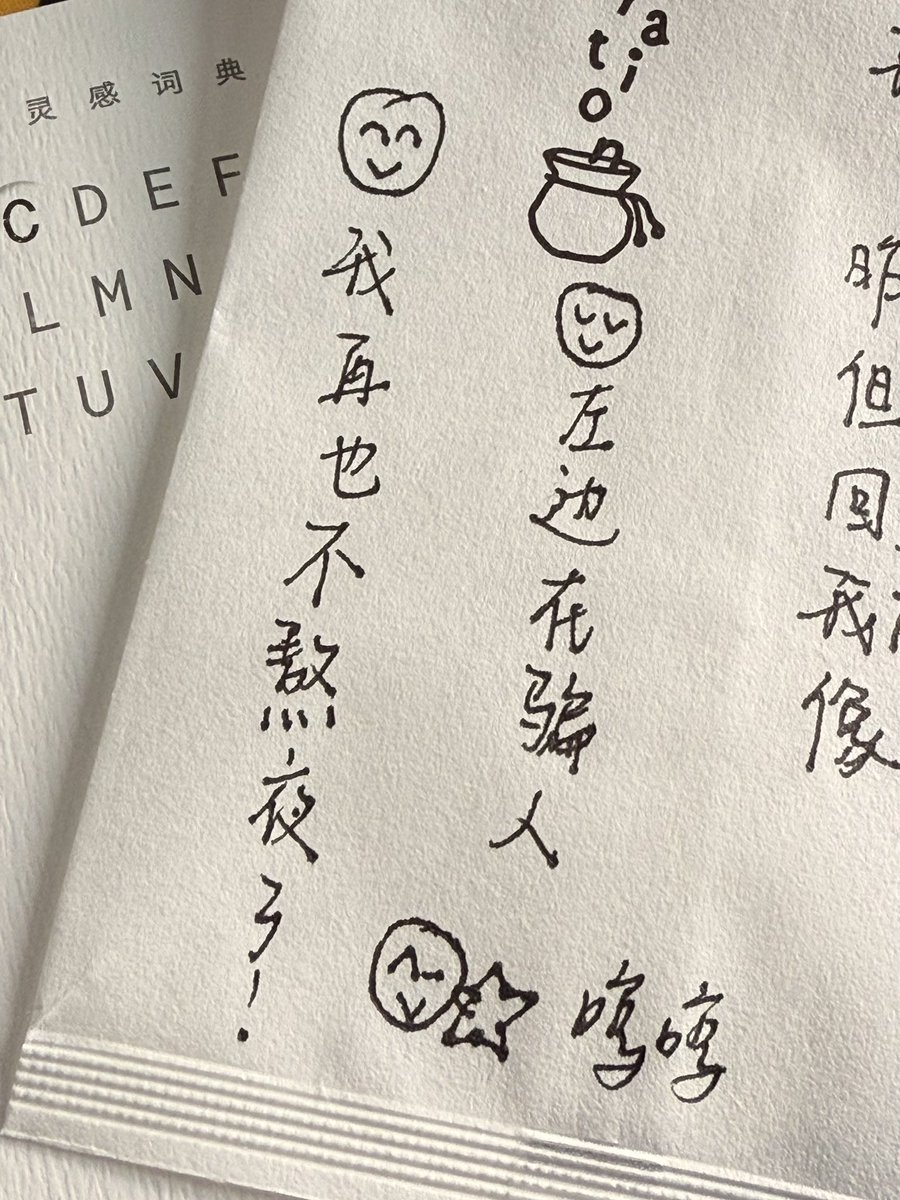 灵感词典
C D E F
L M N
T U V
我再也不熬夜了!
a
t i
o
左边在骗人
哼哼
但
回
我
像